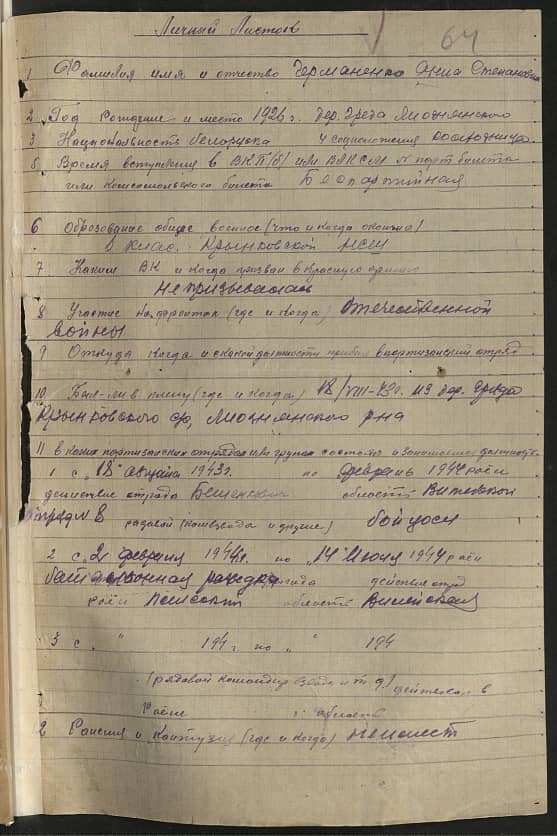 Личный Листов
64
1 Фамилия имя и отчество Германенко Анна Степановна
2 Год рождения и место 1926 г. дер. Греда Лиознянского
3 Национальность белоруска 4 соцположения колхозница
5 Время вступления в ВКП/б/ или ВЛКСМ N парт билета
или комсомольского билета Беспартийная
6 Образование общее военное (что и когда окончил)
6 клас. Крынковской НСШ
7 Каким ВК и когда призван в красную армию
Не призывалась
8 Участие на фронтах (где и когда) Отечественной
войны
9 Откуда когда и с какой должности прибыл в партизанский отряд
10 Был-ли в плену (где и когда) 18/VIII-43г. из дер. Греда
Крынковского с/с, Лиознянского р-на
11 в каких партизанских отрядах или групах состоял и занимаемая должность
1 с "18" августа 1943г. по февраль 1944 район
действие отряда Бешенкович область Витебской
отряд N 8 рядовой (ком взвода и другие) бойцом
2 с "2 февраля 1944г. по "14" Июня 1944 район
батальонная разведка действия отряд
район область Вилейская
3 с " 194 г. по " 194
(рядовой командир взвода и т д) действовал в
район область
12 Ранения и Контузия (где и когда) Не имеет